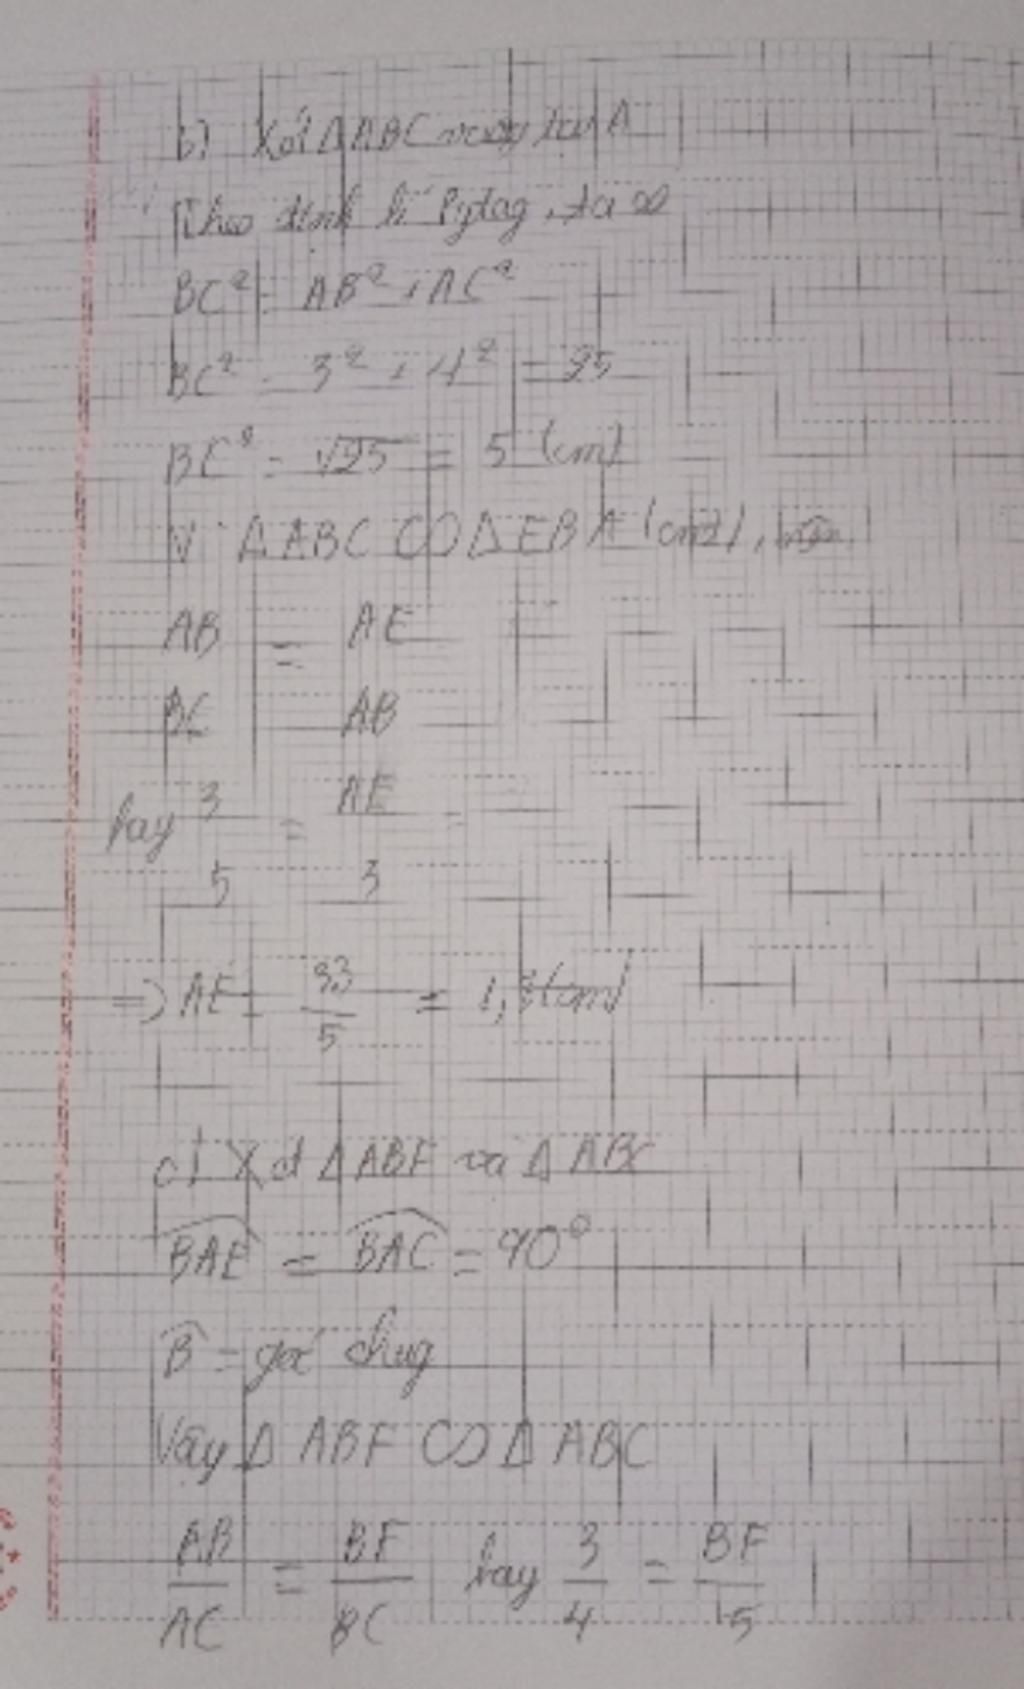 b) Xét Δ ABC vuông tại A
Theo định lí Pytag, ta có
BC² = AB² + AC²
BC² = 3² + 4² = 25
BC² = √25 = 5 (cm)
Vì Δ ABC ∽ Δ EBA (cmt),
AB = AE
BC AB
hay 3 = AE
5 3
=> AE = 3.3/5 = 1, (cm)
c) Xét Δ ABF và Δ ABC
BAE = BAC = 90°
B = góc chug
Vậy Δ ABF ∽ Δ ABC
AB/AC = BF/BC hay 3/4 = BF/5